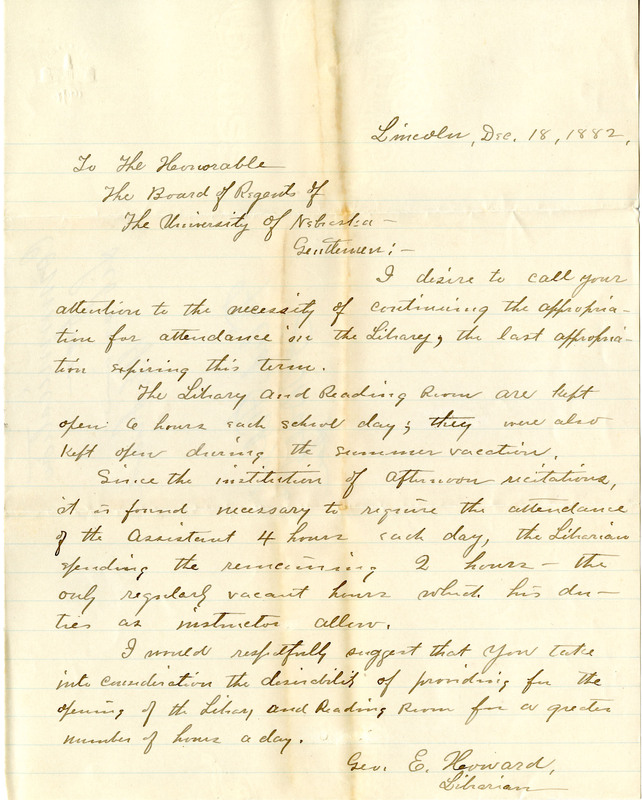 Lincoln, Dec. 18, 1882,
To The Honorable
The Board of Regents of
The University of Nebraska —
Gentlemen: —
I desire to call your
attention to the necessity of continuing the appropria-
tion for attendance in the Library, the last appropria-
tion expiring this term.
The Library and Reading Room are kept
open 6 hours each school day; they were also
kept open during the summer vacation.
Since the institution of afternoon recitations,
it is found necessary to require the attendance
of the Assistant 4 hours each day, the Librarian
spending the remaining 2 hours — the
only regularly vacant hours which his du-
ties as instructor allow.
I would respectfully suggest that you take
into consideration the desirability of providing for the
opening of the Library and Reading Room for a greater
number of hours a day.
Geo. E. Howard,
Librarian